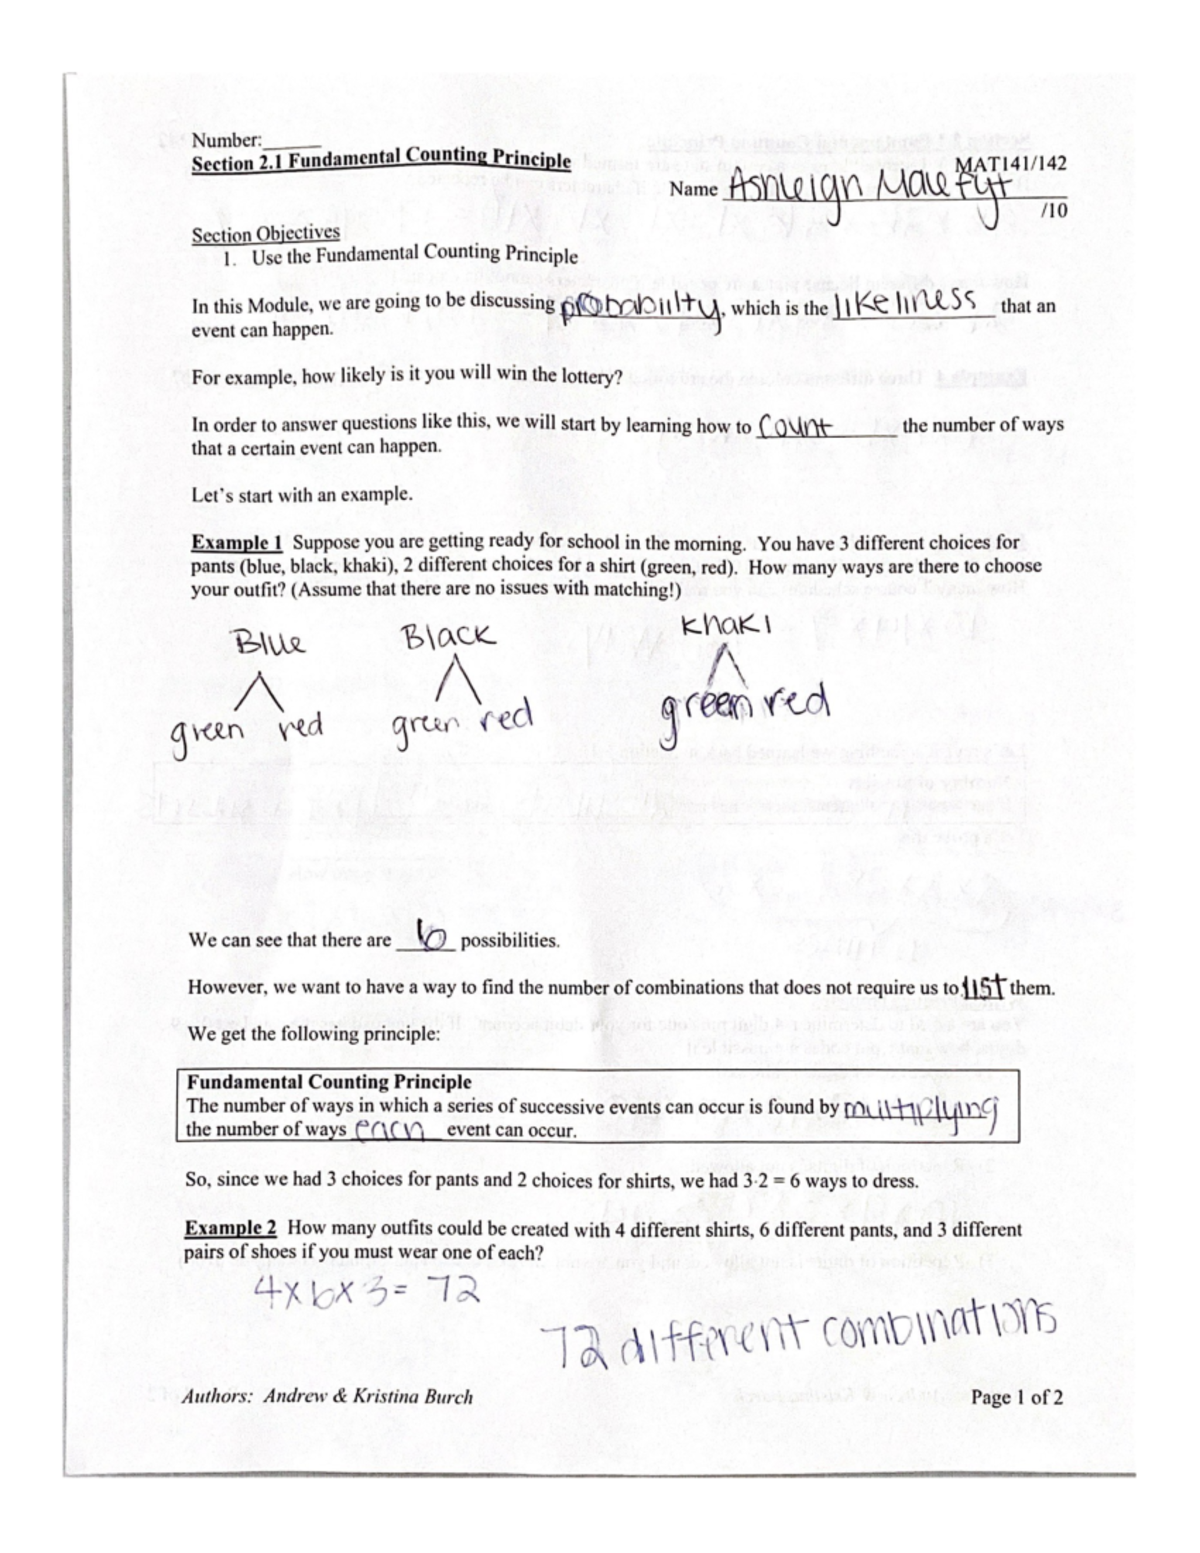 Number:______
Section 2.1 Fundamental Counting Principle
MAT141/142
Name Ashleigh Malefyt
/10
Section Objectives
1. Use the Fundamental Counting Principle
In this Module, we are going to be discussing probabilty, which is the likeliness that an
event can happen.
For example, how likely is it you will win the lottery?
In order to answer questions like this, we will start by learning how to count the number of ways
that a certain event can happen.
Let's start with an example.
Example 1 Suppose you are getting ready for school in the morning. You have 3 different choices for
pants (blue, black, khaki), 2 different choices for a shirt (green, red). How many ways are there to choose
your outfit? (Assume that there are no issues with matching!)
Blue Black Khaki
green red green red green red
We can see that there are 6 possibilities.
However, we want to have a way to find the number of combinations that does not require us to list them.
We get the following principle:
Fundamental Counting Principle
The number of ways in which a series of successive events can occur is found by multiplying
the number of ways each event can occur.
So, since we had 3 choices for pants and 2 choices for shirts, we had 3·2 = 6 ways to dress.
Example 2 How many outfits could be created with 4 different shirts, 6 different pants, and 3 different
pairs of shoes if you must wear one of each?
4x6x3= 72
72 different combinations
Authors: Andrew & Kristina Burch
Page 1 of 2